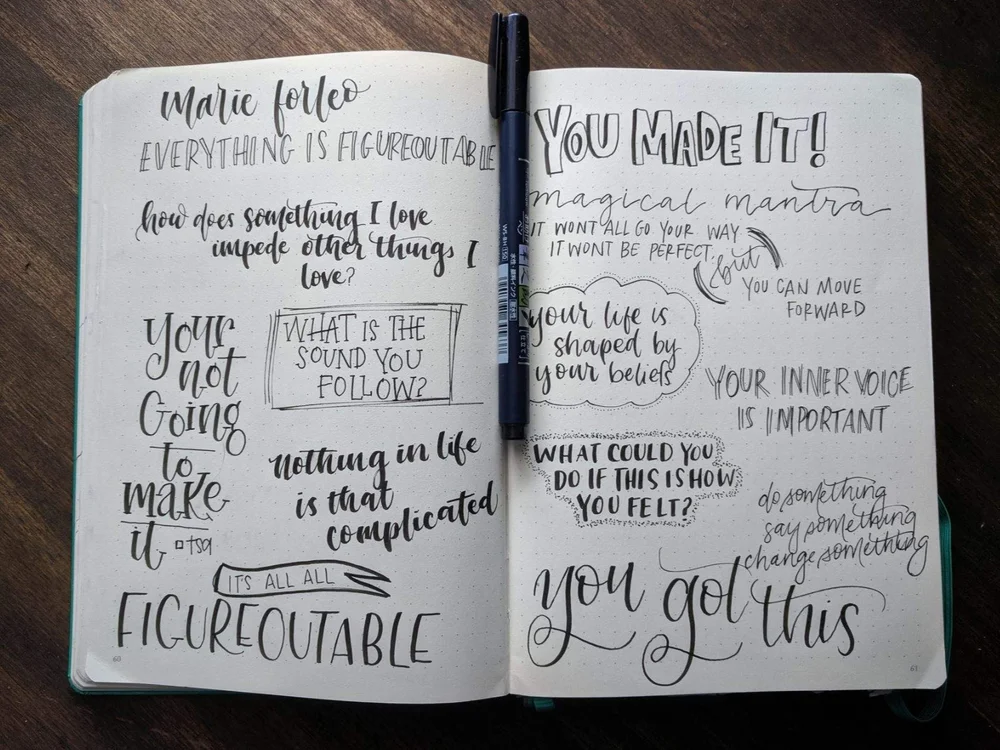 marie forleo
EVERYTHING IS FIGUREOUTABLE
how does something I love
impede other things I
love?
your
not
Going
to
make
it
WHAT IS THE
SOUND YOU
FOLLOW?
nothing in life
is that
complicated
IT'S ALL ALL
FIGUREOUTABLE
60
YOU MADE IT!
magical mantra
IT WONT ALL GO YOUR WAY
IT WONT BE PERFECT.
but
YOU CAN MOVE
FORWARD
your life is
shaped by
your beliefs
YOUR INNER VOICE
IS IMPORTANT
WHAT COULD YOU
DO IF THIS IS HOW
YOU FELT?
do something
say something
change something
you got this
61